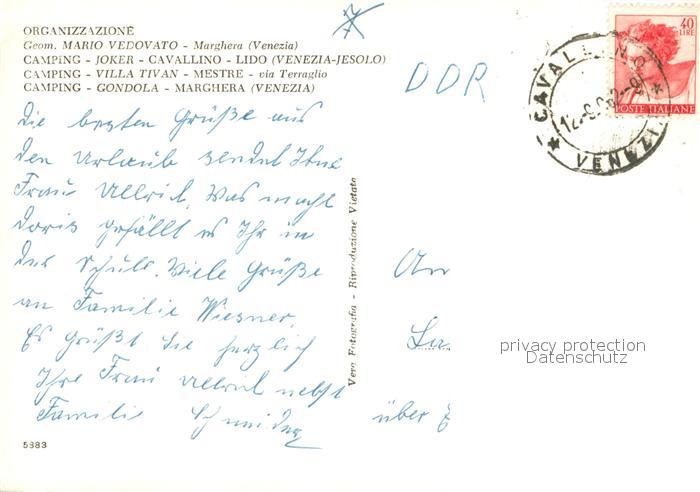 ORGANIZZAZIONE
Geom. MARIO VEDOVATO - Marghera (Venezia)
CAMPING - JOKER - CAVALLINO - LIDO (VENEZIA-JESOLO)
CAMPING - VILLA TIVAN - MESTRE - via Terraglio
CAMPING - GONDOLA - MARGHERA (VENEZIA)
DDR
40
LIRE
POSTE ITALIANE
CAVALLINO
VENEZIA
Die besten Grüße aus
den Urlaub sendet Ihne
Frau Ullrich. Was macht
Doris gefällt es Ihr in
der Schule. Viele Grüße
an Familie Wiesner.
Es grüßt Sie herzlich
Ihre Frau Ullrich nebst
Familie Schneider
Vera Fotografia - Riproduzione Vietata
An
über
privacy protection
Datenschutz
5383